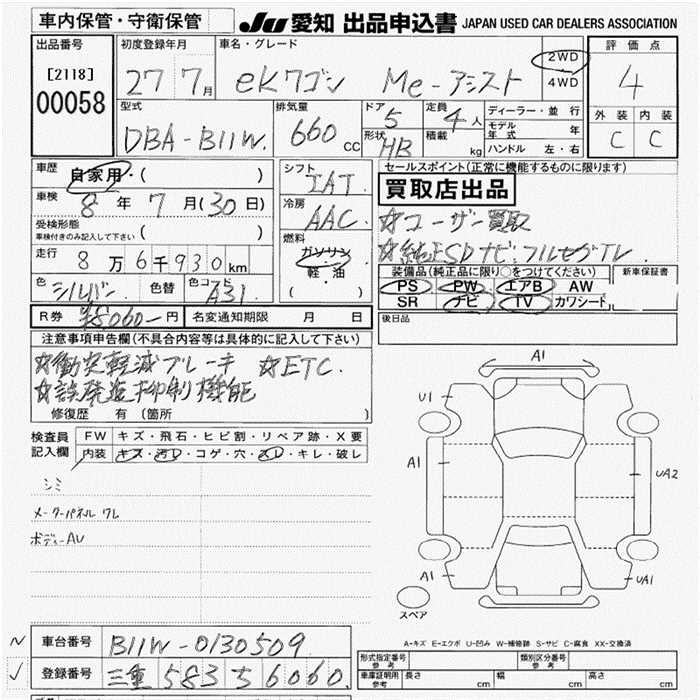 車内保管・守衛保管 JU 愛知 出品申込書 JAPAN USED CAR DEALERS ASSOCIATION
出品番号 初度登録年月 車名・グレード 評価点
[2118] 27 7月 eKワゴン Me-アシスト 2WD 4WD 4
00058 型式 排気量 ドア 定員 ディーラー・並行 外装 内装
DBA-B11W. 660 cc 5 4人 モデル年式 年 C C
形状 HB 積載 kg ハンドル 左・右
車歴 自家用・( ) シフト IAT. セールスポイント(正常に機能するものに限ります)
車検 8年 7月(30日) 冷房 AAC. 買取店出品
受検形態 車検付きのみ記入して下さい ( ) 燃料 ☆ユーザー買取
走行 8万6千930km ガソリン 軽・油 ☆純正SDナビ・フルセグTV.
色 シルバン. 色替 色コード A31 装備品(純正品に限り○をつけてください) 新車保証書
PS PW エアB AW
SR ナビ TV カワシート
R券 ¥8060-円 名変通知期限 月 日 後日品
注意事項申告欄(不具合内容等は具体的に記入して下さい)
☆衝突軽減ブレーキ ☆ETC.
☆誤発進抑制機能
修復歴 有 (箇所 )
検査員記入欄 FW キズ・飛石・ヒビ割・リペア跡・X要
内装 キズ・汚レ・コゲ・穴・スレ・キレ・破レ
シミ
メーターパネル ワレ
ボディーAU
A1
U1
A1 UA2
A1 UA1
スペア
A-キズ E-エクボ U-凹み W-補修跡 S-サビ C-腐食 XX-交換済
車台番号 B11W-0130509
登録番号 三重 583 え 6060.
形式指定番号 参考 類別区分番号 参考
車庫証明用 参考 長さ cm 幅 cm 高さ cm